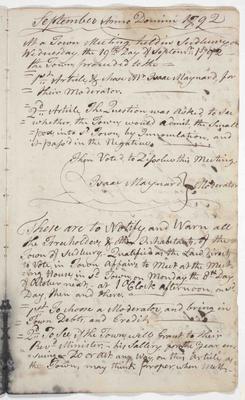 September Anno Domini 1792
At a Town Meeting held in Sudbury on
Wednesday the 19th Day of Septemr 1792
the Town proceeded to the
1st Article & chose Mr Isaac Maynard, for
their Moderator.
2d Article The Question was Asked to See
whether the Town would admit the Small
pox into sd Town by Innoculation, and
it pass'd in the Negative
Then Voted to Dissolve this Meeting.
Isaac Maynard Moderator
These are to Notify and Warn all
the Freeholders & other Inhabitants of the
Town of Sudbury Qualified as the Law directs
to Vote in Town Affairs to Meet at the Meet-
ing House in sd Town on Monday the 8th Day
of October next, at 1 OClock afternoon on sd
Day, then and there.
1st To choose a Moderator and bring in
Town Debts and Credit
2d To See if the Town will Grant to their
Revd Minister his Sallery for the Year en-
suing & To act any way on this Article as
the Town may think proper when Meth-